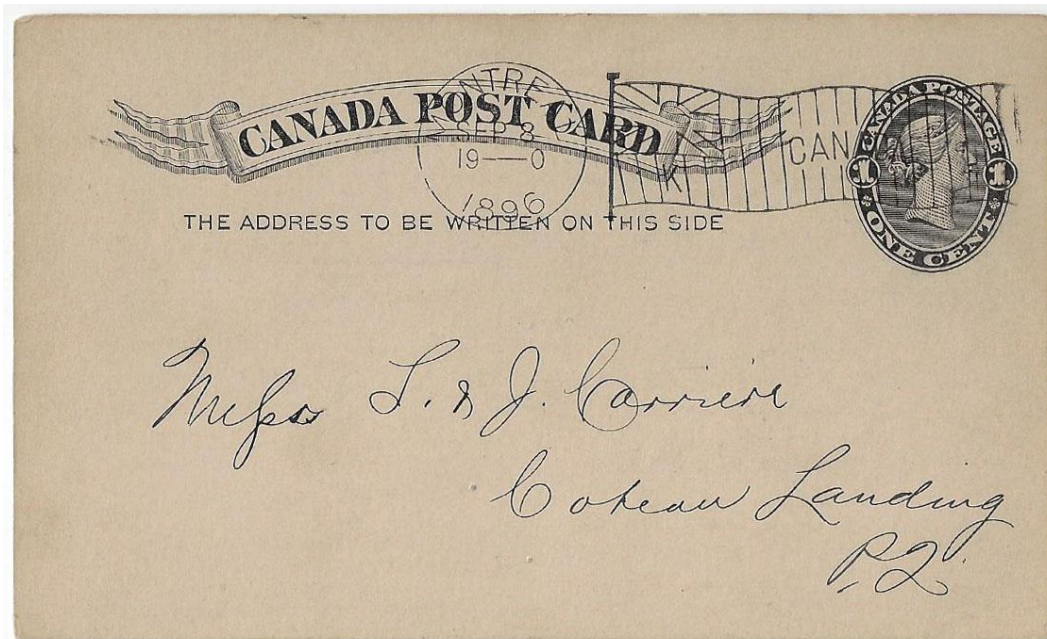 CANADA POST CARD
SEP 8
19—0
1896
CAN
CANADA POSTAGE
1 1
ONE CENT
THE ADDRESS TO BE WRITTEN ON THIS SIDE
Miss L. & J. Carriere
Coteau Landing
P.Q.